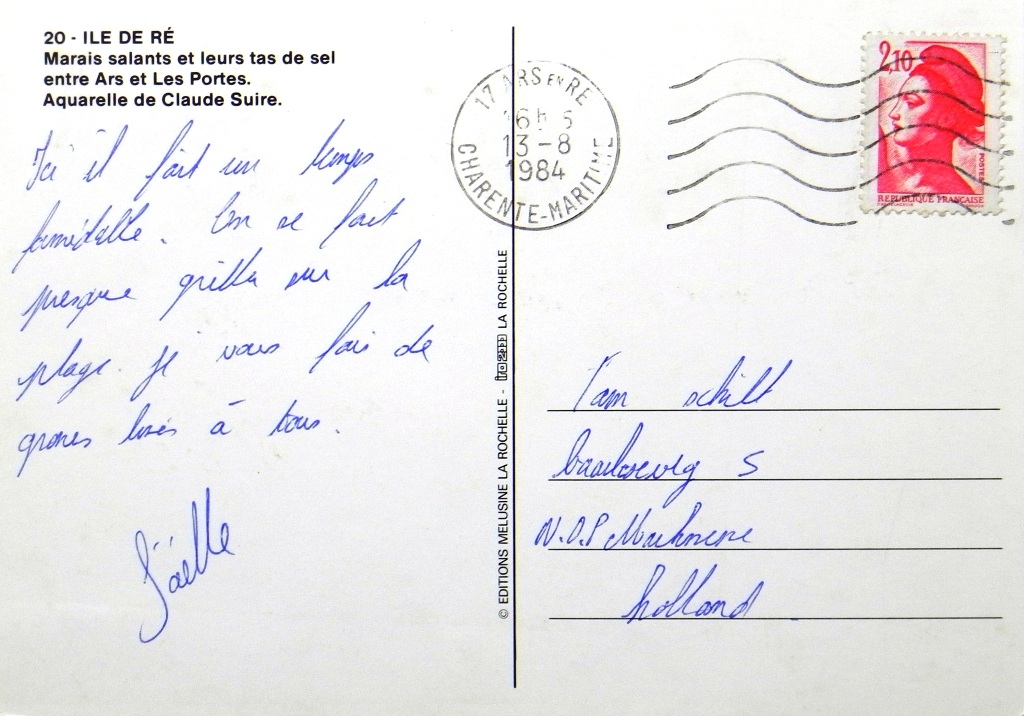 20 - ILE DE RÉ
Marais salants et leurs tas de sel
entre Ars et Les Portes.
Aquarelle de Claude Suire.
Ici il fait un temps
formidable. On se fait
presque griller sur la
plage. Je vous fais de
grosses bises à tous.
Joëlle
17 ARS EN RE
16h 5
13-8
1984
CHARENTE-MARITIME
2,10
POSTES
REPUBLIQUE FRANCAISE
© EDITIONS MELUSINE LA ROCHELLE - LA ROCHELLE
Tam schilt
5
holland